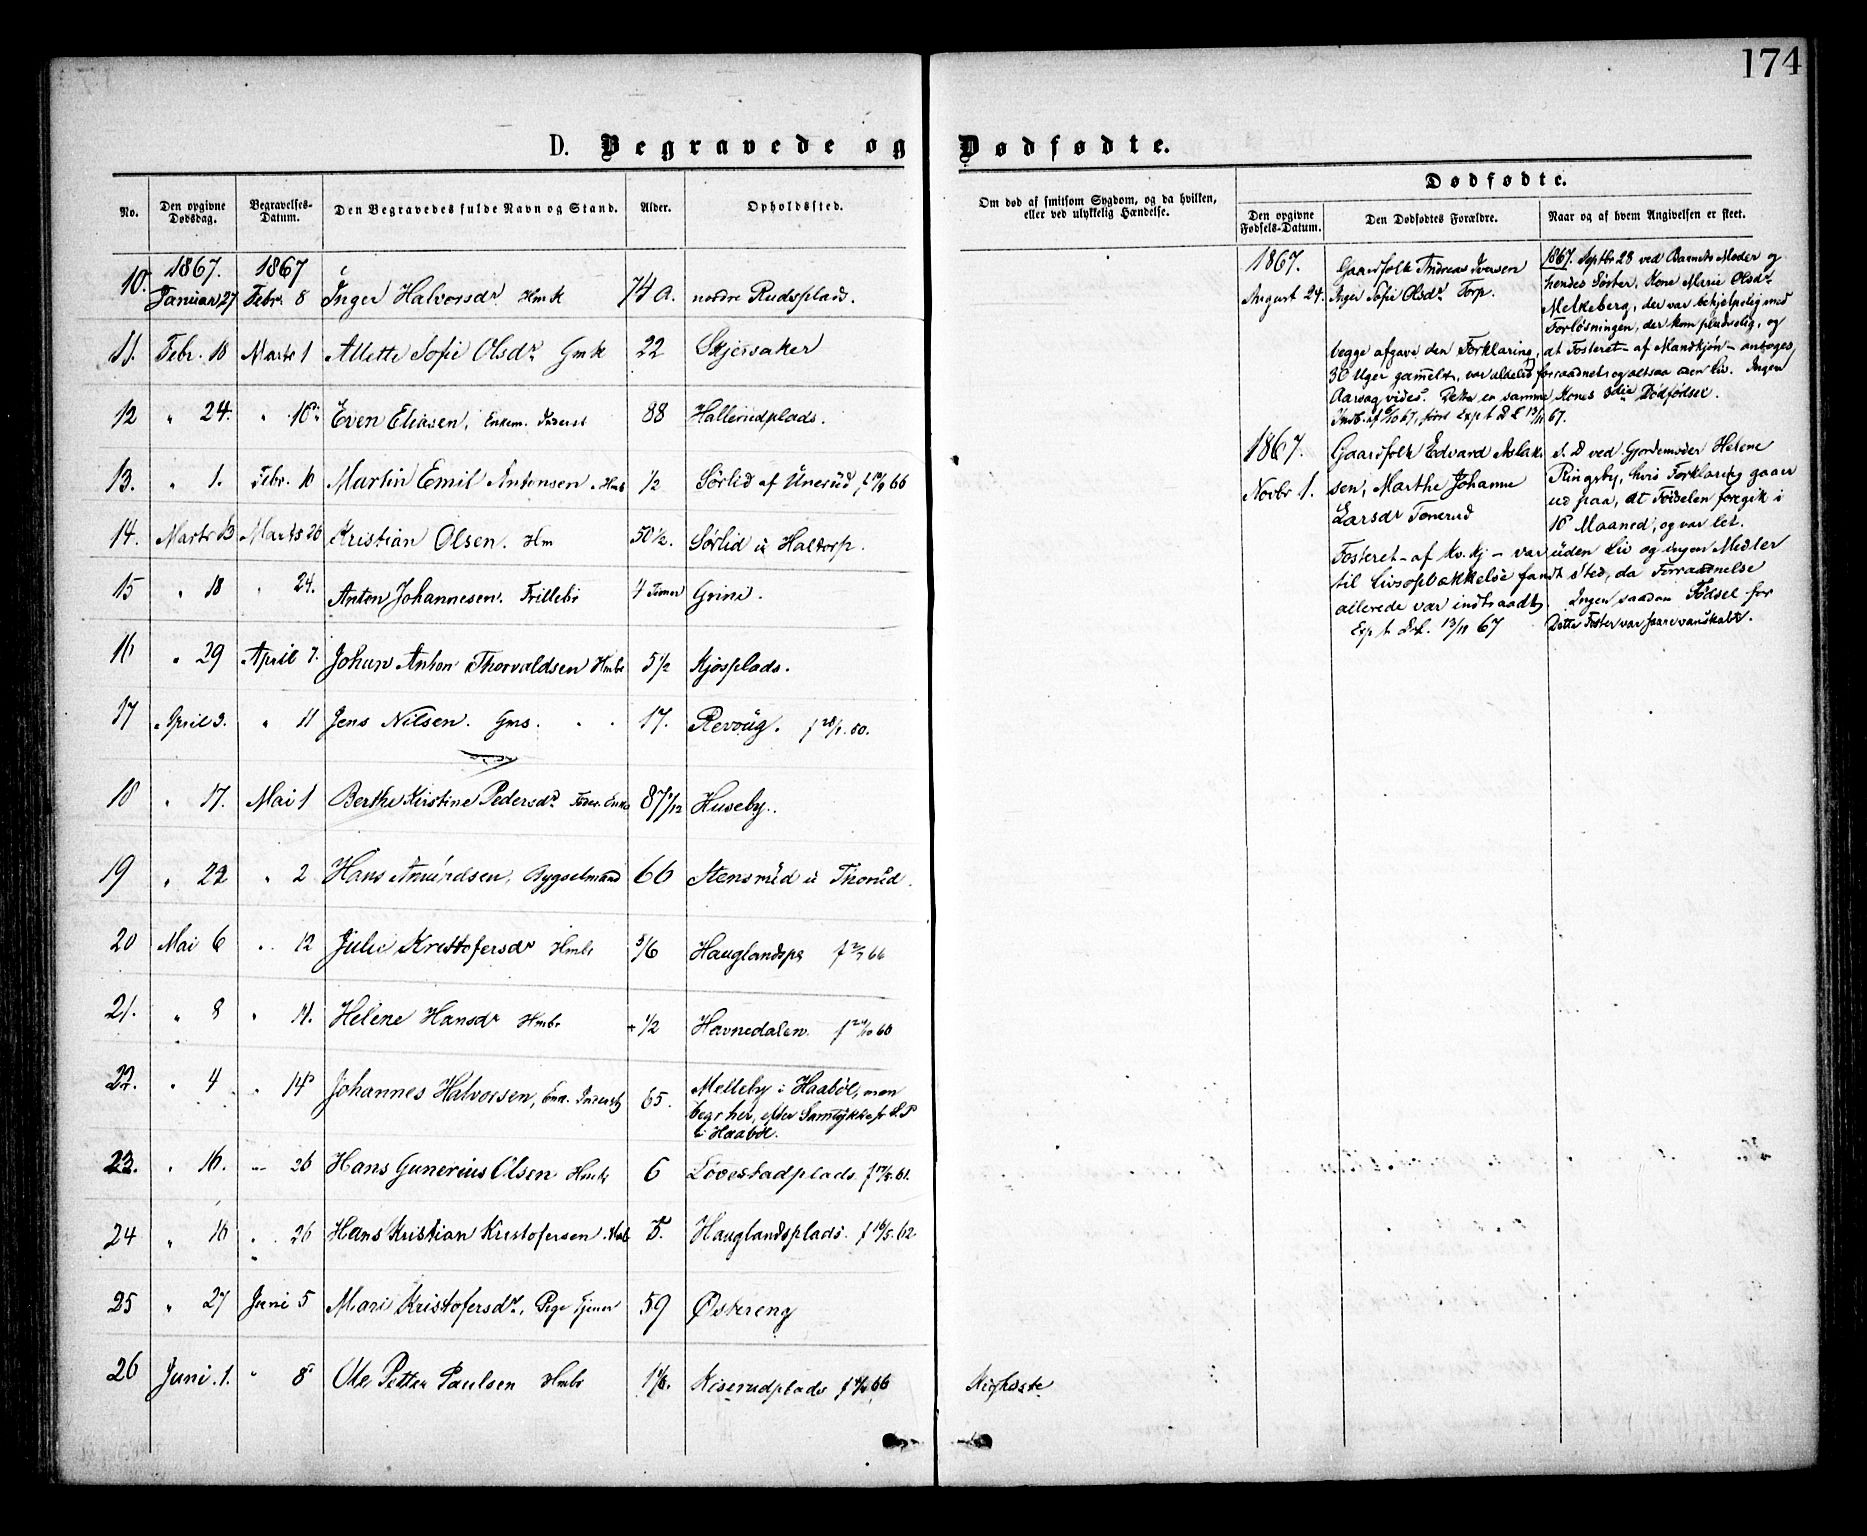 174
D. Begravede og Dødfødte.
No. Den opgivne Dødsdag. Begravelses-Datum. Den Begravedes fulde Navn og Stand. Alder. Opholdssted.
Om død af smitsom Sygdom, og da hvilken, eller ved ulykkelig Hændelse.
Dødfødte.
Den opgivne Fødsels-Datum. Den Dødfødtes Forældre. Naar og af hvem Angivelsen er skeet.
1867. 1867
10. Januar 27 Febr. 8 Inger Halvorsdr Hmk 74 a. nordre Rudsplads.
11. Febr. 18 Marts 1 Allette Sofie Olsdr Gmk 22 Skjersaker
12 " 24. " 10 Even Eliasen, Enkem. Inderst 88 Hallerudplads.
13. " 1. Febr. 10 Martin Emil Antonsen Hmb 1/2 Sørlid af Unerud f 19/9 66
14. Marts 13 Marts 20 Kristian Olsen. Hm 50 1/2. Sørlid u Haltorp.
15 " 18 " 24. Anton Johannesen. Frillebr 4 Timer Grini.
16 " 29 April 7. Johan Anton Thorvaldsen Hmbr 5 1/2 Kjosplads.
17 April 3. " 11 Jens Nilsen. Gms. 17. Revoug. f 28/1. 50.
18 " 17. Mai 1 Berthe Kirstine Pedersdr Føder. Enke 87 1/12 Huseby.
19 " 22 " 2 Hans Amundsen, Bygselmand 66 Stensrud u Thorud.
20 Mai 6 " 12 Julie Kristofersdr Hmbr 5/6 Hauglandspl f 2/7 66
21. " 8 " 11. Helene Hansdr Hmbr 1/2 Havnedalen.
22. " 4 " 14 Johannes Halvorsen, Enk. Inderst 65. Melleby i Haabøl, men
begr her, efter Samtykke fr S.P
i Haabøl.
23. " 16. " 26 Hans Gunerius Olsen Hmbr 6 Løvestadplads. f 17/5. 61.
24 " 16 " 26 Hans Kristian Kristofersen Hmb 5. Hauglandsplads. f 16/5. 62
25 " 27 Juni 5 Mari Kristofersdr, Pige Tjener 59 Østereng
26 Juni. 1. " 8 Ole Petter Paulsen Hmbr Riserudplads Kighoste
1867.
August 24. Gaardfolk Andreas Iversen
Inger Sofie Olsdr Torp.
1867. Septbr 28 ved Barnets Moder og
hendes Søster, Kone Marie Olsdr
Melkeberg, der var behjelpelig med
Forløsningen, der kom pludselig, og
begge afgave den Forklaring, at Fosteret - af Mandkjøn - antoges
30 Uger gammelt, var aldeles forraadnet og altsaa uden Liv. Ingen
Aarsag vides. Dette er samme Kones Dødfødsel.
1867.
Novbr 1. Gaardfolk Edvard Aslak-
sen, Marthe Johanne
Larsdr Tonerud
s. D ved Gjordemoder Helene
Ringsby, hvis Forklaring gaaer
ud paa, at Fødselen foregik i
10 Maaned, og var let.
Fosteret - af Kv. Kj - var uden Liv og ingen Midler
til Livsopvækkelse fandt sted, da Forraadnelse
allerede var indtraadt. Ingen saadan Fødsel før
Exp t 13/11 67 Dette Foster var vanskabt.